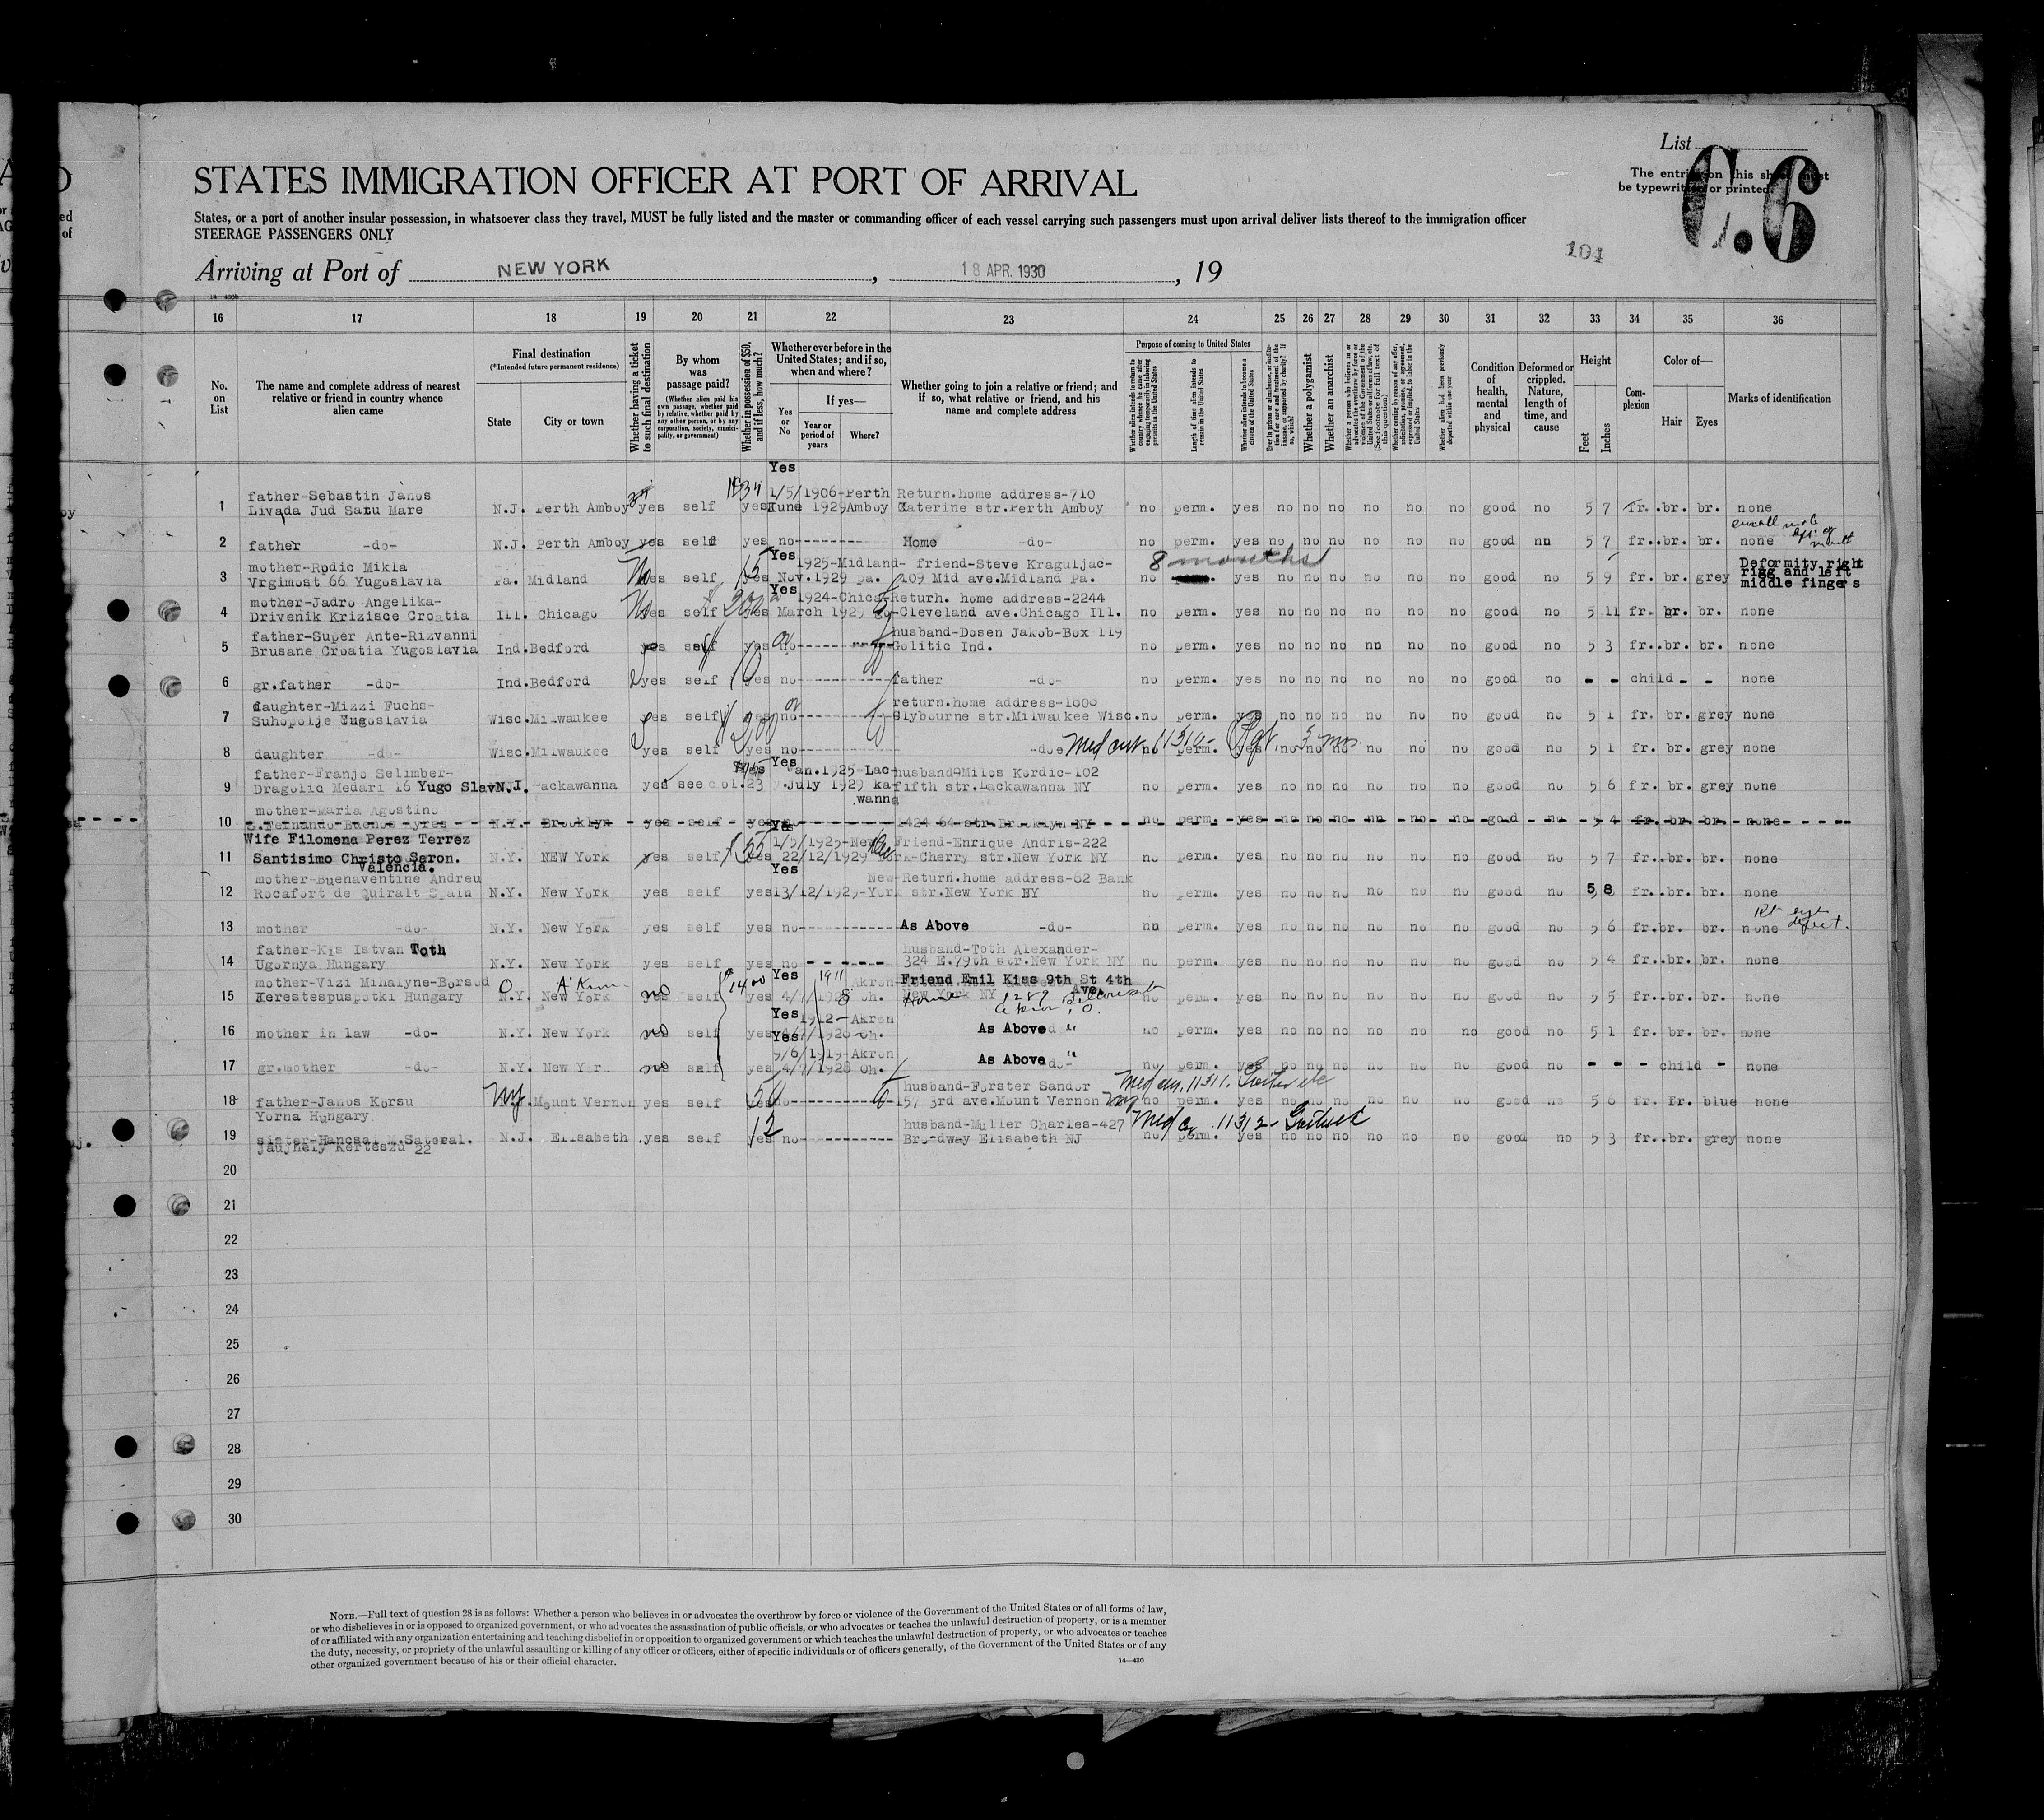 List
C.6
The entries on this sheet must
be typewritten or printed.
STATES IMMIGRATION OFFICER AT PORT OF ARRIVAL
States, or a port of another insular possession, in whatsoever class they travel, MUST be fully listed and the master or commanding officer of each vessel carrying such passengers must upon arrival deliver lists thereof to the immigration officer
STEERAGE PASSENGERS ONLY
104
Arriving at Port of NEW YORK, 18 APR. 1930, 19
16 17 18 19 20 21 22 23 24 25 26 27 28 29 30 31 32 33 34 35 36
No. on List
The name and complete address of nearest relative or friend in country whence alien came
Final destination
(*Intended future permanent residence)
State City or town
Whether having a ticket to such final destination
By whom was passage paid?
(Whether alien paid his own passage, whether paid by relative, whether paid by any other person, or by any corporation, society, municipality, or government)
Whether in possession of $50, and if less, how much?
Whether ever before in the United States; and if so, when and where?
Yes or No
If yes—
Year or period of years
Where?
Whether going to join a relative or friend; and if so, what relative or friend, and his name and complete address
Purpose of coming to United States
Length of time alien intends to remain in the United States
Whether alien intends to become a citizen of the United States
Whether a polygamist
Whether an anarchist
Condition of health, mental and physical
Deformed or crippled. Nature, length of time, and cause
Height
Feet Inches
Complexion
Color of—
Hair Eyes
Marks of identification
Yes
father-Sebastin Janos 1/5/1906-Perth Return.home address-710
1 Livada Jud Satu Mare N.J. Perth Amboy yes self yes June 1929 Amboy Katerine str.Perth Amboy no perm. yes no no no no no no good no 5 7 fr. br. br. none
2 father -do- N.J. Perth Amboy yes self yes no Home -do- no perm. yes no no no no no no good no 5 7 fr. br. br. none
mother-Rodic Mikla Yes 1925-Midland- friend-Steve Kraguljac- 8 months Deformity right
3 Vrgimost 66 Yugoslavia Pa. Midland No self 15 Nov.1929 pa. 109 Mid ave.Midland Pa. no yes no no no no no no good no 5 9 fr. br. grey ring and left
middle fingers
mother-Jadro Angelika- Yes 1924-Chica- Return. home address-2244
4 Drivenik Krizisce Croatia Ill. Chicago No self yes March 1929 go -Cleveland ave.Chicago Ill. no perm. yes no no no no no no good no 5 11 fr. br. br. none
father-Super Ante-Rizvanni husband-Dosen Jakob-Box 119
5 Brusane Croatia Yugoslavia Ind. Bedford yes self yes no Golitic Ind. no perm. yes no no no no no no good no 5 3 fr. br. br. none
6 gr.father -do- Ind. Bedford yes self yes no father -do- no perm. yes no no no no no no good no - - child - - none
daughter-Mizzi Fuchs- return.home address-1000
7 Suhopolje Yugoslavia Wisc. Milwaukee yes self yes no Clybourne str.Milwaukee Wisc. no perm. yes no no no no no no good no 5 1 fr. br. grey none
8 daughter -do- Wisc. Milwaukee yes self yes no -do- no perm. yes no no no no no no good no 5 1 fr. br. grey none
father-Franjo Selimber- Yes Jan.1925-Lac- husband-Milos Kordic-102
9 Dragolic Medari 16 Yugo Slav N.J. Lackawanna yes see col.23 July 1929 ka- fifth str.Lackawanna NY no perm. yes no no no no no no good no 5 6 fr. br. grey none
wanna
mother-Maria Agostino
10 S.Fernando Buenos Ayres N.Y. Brooklyn yes self yes no 1424 64 str.Brooklyn NY no perm. yes no no no no no no good no 5 4 fr. br. br. none
Wife Filomena Perez Terrez Yes 1/5/1925-New Friend-Enrique Andris-222
11 Santisimo Christo Saron. N.Y. NEW York yes self yes 22/12/1929 York-Cherry str.New York NY no perm. yes no no no no no no good no 5 7 fr. br. br. none
Valencia.
mother-Buenaventine Andreu Yes New- Return.home address-82 Bank
12 Rocafort de Quiralt Spain N.Y. New York yes self yes 13/12/1929-York str.New York NY no perm. yes no no no no no no good no 5 8 fr. br. br. none
Rt eye
13 mother -do- N.Y. New York yes self yes no As Above -do- no perm. yes no no no no no no good no 5 6 fr. br. br. none defect.
father-Kis Istvan Toth husband-Toth Alexander-
14 Ugornya Hungary N.Y. New York yes self yes no 324 E.79th str.New York NY no perm. yes no no no no no no good no 5 4 fr. br. br. none
mother-Vizi Mihalyne-Borsod O Akron 1400 Yes 1911 Akron Friend Emil Kiss 9th St 4th Ave.
15 Kerestespuspotki Hungary N.Y. New York no self yes 1928 Oh. New York NY Home 1289 Akron, O. no perm. yes no no no no no no good no 5 5 fr. br. br. none
Yes 1912-Akron
16 mother in law -do- N.Y. New York no self yes 1928 Oh. As Above " no perm. yes no no no no no no good no 5 1 fr. br. br. none
Yes 9/6/1919-Akron
17 gr.mother -do- N.Y. New York no self yes 4/7/1928 Oh. As Above " no perm. yes no no no no no no good no - - - child - none
husband-Forster Sandor Med cer. 11311. Goiter etc
18 father-Janos Korsu NY. Mount Vernon yes self no 3rd ave.Mount Vernon NY no perm. yes no no no no no no good no 5 6 fr. fr. blue none
Yorna Hungary 12 husband-Muller Charles-427 Med cer. 11312-
19 N.J. Elisabeth yes self yes no Broadway Elisabeth NJ no perm. yes no no no no no no good no 5 3 fr. br. grey none
20
21
22
23
24
25
26
27
28
29
30
NOTE.—Full text of question 28 is as follows: Whether a person who believes in or advocates the overthrow by force or violence of the Government of the United States or of all forms of law,
or who disbelieves in or is opposed to organized government, or who advocates the assassination of public officials, or who advocates or teaches the unlawful destruction of property, or is a member
of or affiliated with any organization entertaining and teaching disbelief in or opposition to organized government or which teaches the unlawful destruction of property, or who advocates or teaches
the duty, necessity, or propriety of the unlawful assaulting or killing of any officer or officers, either of specific individuals or of officers generally, of the Government of the United States or of any
other organized government because of his or their official character.
14—430